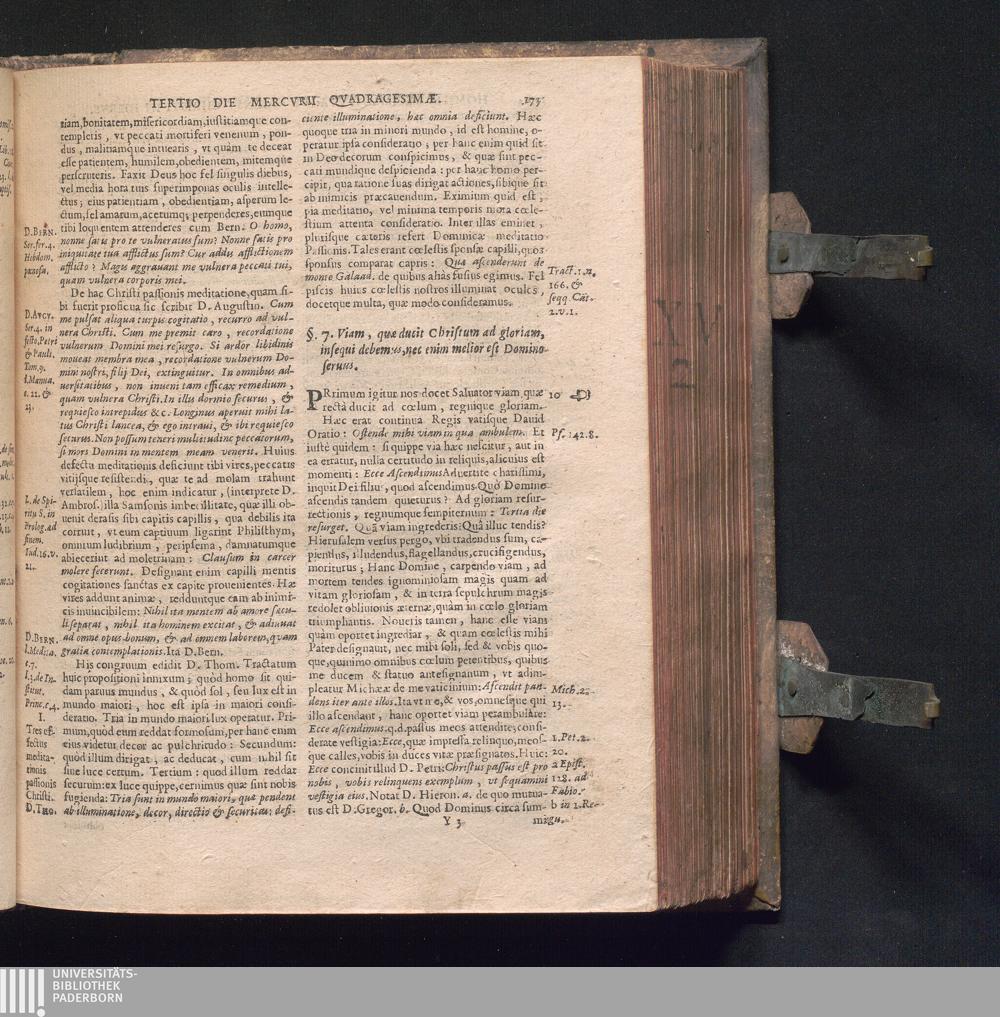 TERTIO DIE MERCVRII QVADRAGESIMÆ.
173
tiam, bonitatem, misericordiam, iustitiamque con-
templetis, vt peccati mortiferi venenum, pon-
dus, malitiamque intuearis, vt quàm te deceat
esse patientem, humilem, obedientem, mitemque
perscruteris. Faxit Deus hoc fel singulis diebus,
vel media hora tuis superimponas oculis intelle-
ctus; eius patientiam, obedientiam, asperum le-
ctum, fel amarum, acetumq; perpenderes, eumque
tibi loquentem attenderes cum Bern. O homo,
nonne satis pro te vulneratus sum? Nonne satis pro
iniquitate tua afflictus sum? Cur addis afflictionem
afflicto? Magis aggravant me vulnera peccati tui,
quam vulnera corporis mei.
De hac Christi passionis meditatione, quam si-
bi fuerit proficua sic scribit D. Augustin. Cum
me pulsat aliqua turpis cogitatio, recurro ad vul-
nera Christi. Cum me premit caro, recordatione
vulnerum Domini mei resurgo. Si ardor libidinis
moueat membra mea, recordatione vulnerum Do-
mini nostri, filij Dei, extinguitur. In omnibus ad-
uersitatibus, non inueni tam efficax remedium,
quam vulnera Christi. In illis dormio securus, &
requiesco intrepidus &c. Longinus aperuit mihi la-
tus Christi lancea, & ego intraui, & ibi requiesco
securus. Non possum terreri multitudine peccatorum,
si mors Domini in mentem meam venerit. Huius
defectu meditationis deficiunt tibi vires, peccatis
vitijsque resistendi, quæ te ad molam trahunt
versatilem, hoc enim indicatur, (interprete D.
Ambros.) illa Samsonis imbecillitate, quæ illi ob-
uenit derasis sibi capitis capillis, qua debilis ita
corruit, vt eum captiuum ligarint Philisthym,
omnium ludibrium, peripsema, damnatumque
abiecerint ad moletrinam: Clausum in carcer
molere fecerunt. Designant enim capilli mentis
cogitationes sanctas ex capite prouenientes. Hæ
vires addunt animæ, redduntque eam ab inimi-
cis inuincibilem: Nihil ita mentem ab amore sæcu-
li separat, nihil ita hominem excitat, & adiuuat
ad omne opus bonum, & ad omnem laborem, quam
gratia contemplationis. Ita D. Bern.
His congruum edidit D. Thom. Tractatum
huic propositioni innixum; quòd homo sit qui-
dam paruus mundus, & quòd sol, seu lux est in
mundo maiori, hoc est ipsa in maiori consi-
deratio. Tria in mundo maiori lux operatur. Pri-
mum, quòd eum reddat formosum, per hanc enim
eius videtur decor ac pulchritudo: Secundum:
quòd illum dirigat, ac deducat, cum nihil sit
sine luce certum. Tertium: quod illum reddat
securum: ex luce quippe, cernimus quæ sint nobis
fugienda: Tria sunt in mundo maiori, quæ pendent
ab illuminatione, decor, directio & securitas: defi-
D. BERN.
Ser. fer. 4.
Hebdom.
pænosa.
D. AVGV.
Ser. 4. in
festo, Petri
& Pauli.
Tom. 9.
l. Manua.
c. 22. &
23.
L. de Spi-
ritu S. in
Prolog. ad
finem.
Iud. 16. v.
21.
D. BERN.
c. 7.
l. 3. de In-
stitut.
Princ. c. 4.
I.
Tres ef-
fectus
medita-
tionis
passionis
Christi.
D. THO.
ciente illuminatione, hæc omnia deficiunt. Hæc
quoque tria in minori mundo, id est homine, o-
peratur ipsa consideratio; per hanc enim quid sit
in Deo decorum conspicimus, & quæ sint pec-
cati mundique despicienda: per hanc homo per-
cipit, qua ratione suas dirigat actiones, sibique sit
ab inimicis præcauendum. Eximium quid est,
pia meditatio, vel minima temporis mora cœle-
stium attenta consideratio. Inter illas eminet,
plurisque cæteris refert Dominicæ meditatio
Passionis. Tales erant cœlestis sponsæ capilli, quos
sponsus comparat capris: Quæ ascenderunt de
monte Galaad. de quibus aliàs fusius egimus. Fel
piscis huius cœlestis nostros illuminat oculos,
docetque multa, quæ modo consideramus.
§. 7. Viam, quæ ducit Christum ad gloriam,
insequi debemus, nec enim melior est Domino
seruus.
PRimum igitur nos docet Saluator viam, quæ
rectà ducit ad cœlum, regnique gloriam.
Hæc erat continua Regis vatisque Dauid
Oratio: Ostende mihi viam in qua ambulem. Et
iustè quidem: si quippe via hæc nescitur, aut in
ea erratur, nulla certitudo in reliquis, alicuius est
momenti: Ecce Ascendimus Aduertite charissimi,
inquit Dei filius, quod ascendimus Quò Domine
ascendis tandem quieturus? Ad gloriam resur-
rectionis, regnumque sempiternum: Tertia die
resurget. Quã viam ingrederis? Quà illuc tendis?
Hierusalem versus pergo, vbi tradendus sum, ca-
piendus, illudendus, flagellandus, crucifigendus,
moriturus; Hanc Domine, carpendo viam, ad
mortem tendes ignominiosam magis quam ad
vitam gloriosam, & in terra sepulchrum magis
redolet obliuionis æternæ, quàm in cœlo gloriam
triumphantis. Noueris tamen, hanc esse viam
quàm oportet ingrediar, & quam cœlestis mihi
Pater designauit, nec mihi soli, sed & vobis quo-
que, quinimo omnibus cœlum petentibus, quibus
me ducem & statuo antesignanum, vt adim-
pleatur Michææ de me vaticinium: Ascendit pan-
dens iter ante illos. Ita vt me, & vos, omnesque qui
illo ascendant, hanc oportet viam perambulare:
Ecce ascendimus. q.d. passus meos attendite, consi-
derate vestigia: Ecce, quæ impressa relinquo, meos-
que calles, vobis in duces vitæ præsignatos. Huic
Ecce concinit illud D. Petri: Christus passus est pro
nobis, vobis relinquens exemplum, vt sequamini
vestigia eius. Notat D. Hieron. a. de quo mutua-
tus est D. Gregor. b. Quod Dominus circa sum-
Y 3
mirgu-
Tract. 1. n.
166. &
seqq. Cãt.
2. v. 1.
10
Ps. 142. 8.
Mich. 2.
13.
1. Pet. 2.
20.
a Epist.
128. ad
Fabio.
b in 1. Re-
UNIVERSITÄTS-
BIBLIOTHEK
PADERBORN